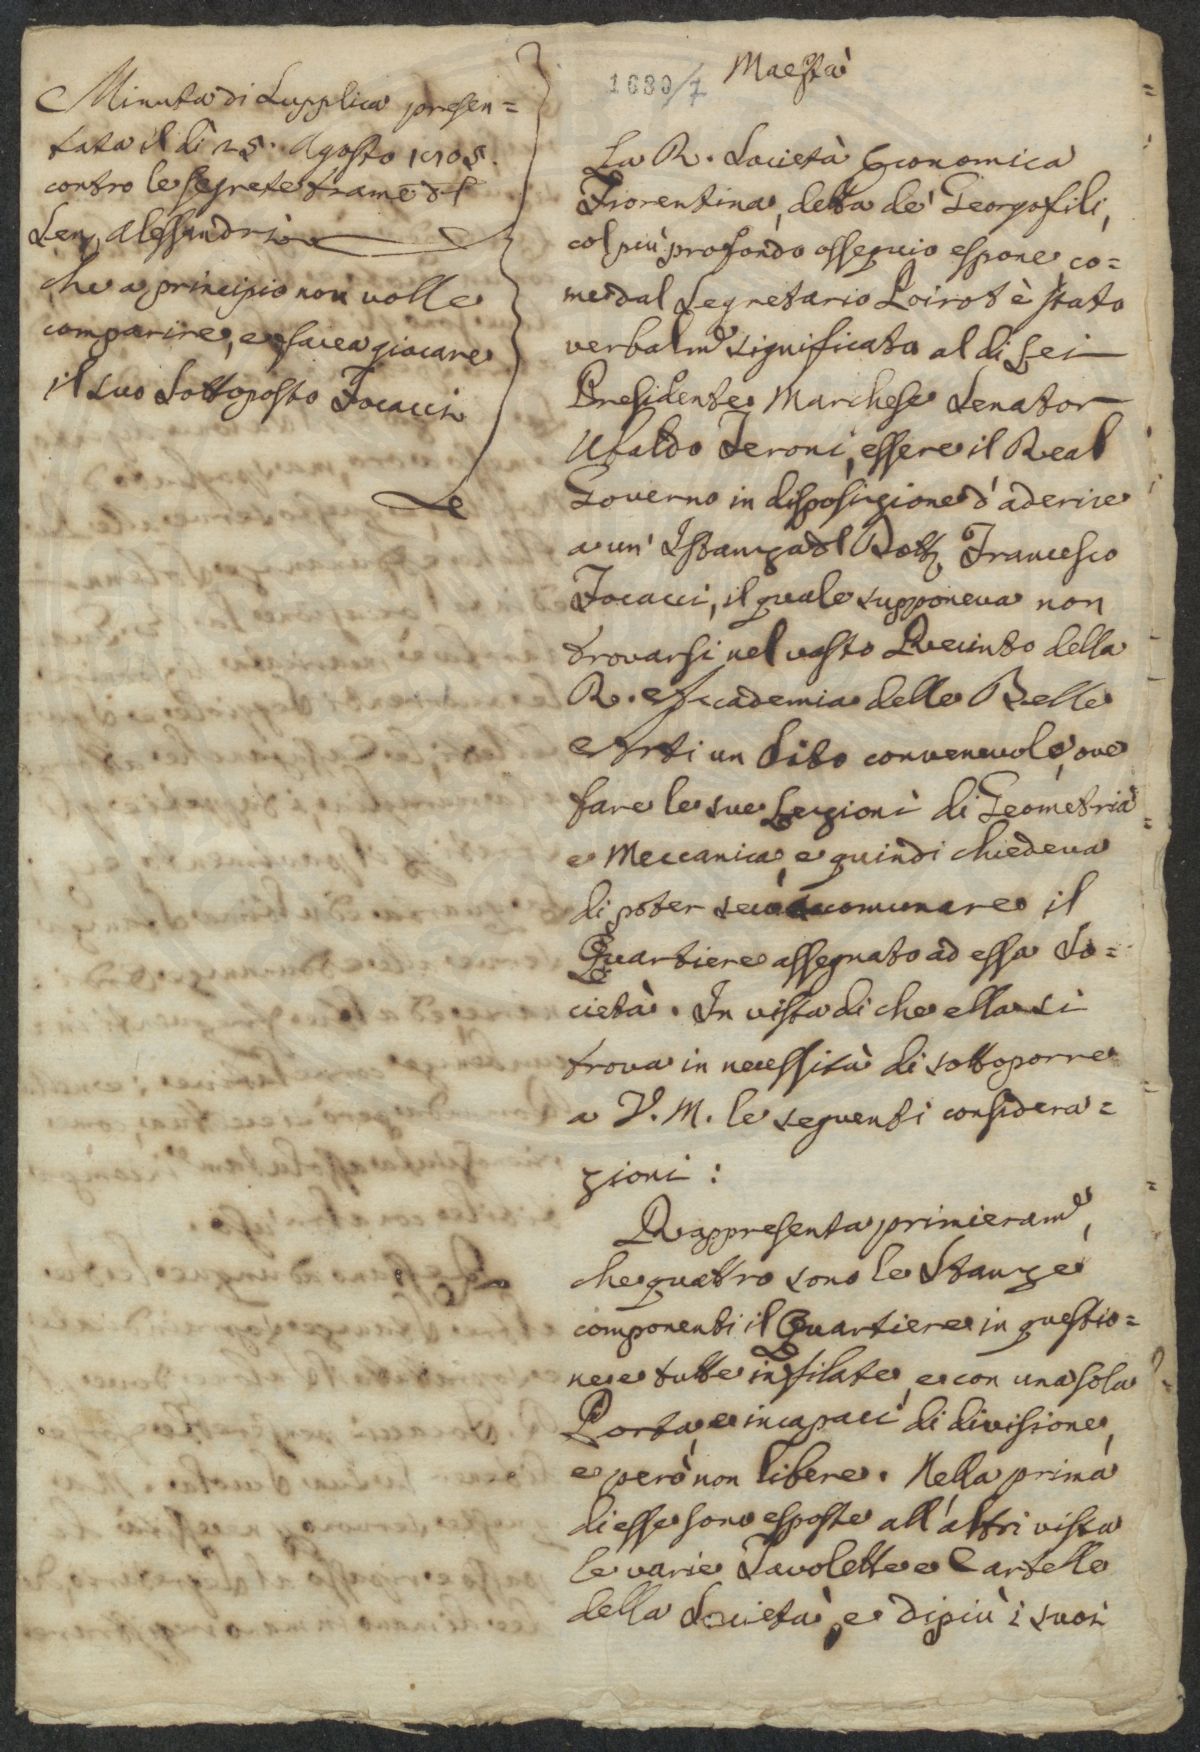 Minuta di Supplica presen=
tata il dì 25. Agosto 1805.
contro le segrete trame del
Sen. Alessandri
che a principio non volle
comparire, e facea giocare
il suo Sottoposto Focacci
1680/7
Maestà
La R. Società Economica
Fiorentina, detta de' Georgofili,
col più profondo ossequio espone, co=
me dal Segretario Poirot è stato
verbalm.e significato al di Lei
Presidente Marchese Senator
Ubaldo Feroni, essere il Real
Governo in disposizione d'aderire
a un' Istanza del Dott. Francesco
Focacci, il quale supponeva non
trovarsi nel vasto Recinto della
R. Accademia delle Belle
Arti un Sito convenevole, ove
fare le sue Lezioni di Geometria
e Meccanica, e quindi chiedeva
di poter seco accomunare il
Quartiere assegnato ad essa So=
cietà. In vista di che ella si
trova in necessità di sottoporre
a V. M. le seguenti considera=
zioni:
Rappresenta primieram.e,
che quattro sono le Stanze
componenti il Quartiere in questio=
ne e tutte infilate, e con una sola
Porta, e incapaci di divisione,
e però non libere. Nella prima
di esse sono esposte all'altrui vista
le varie Tavolette e Cartelle
della Società, e di più i suoi